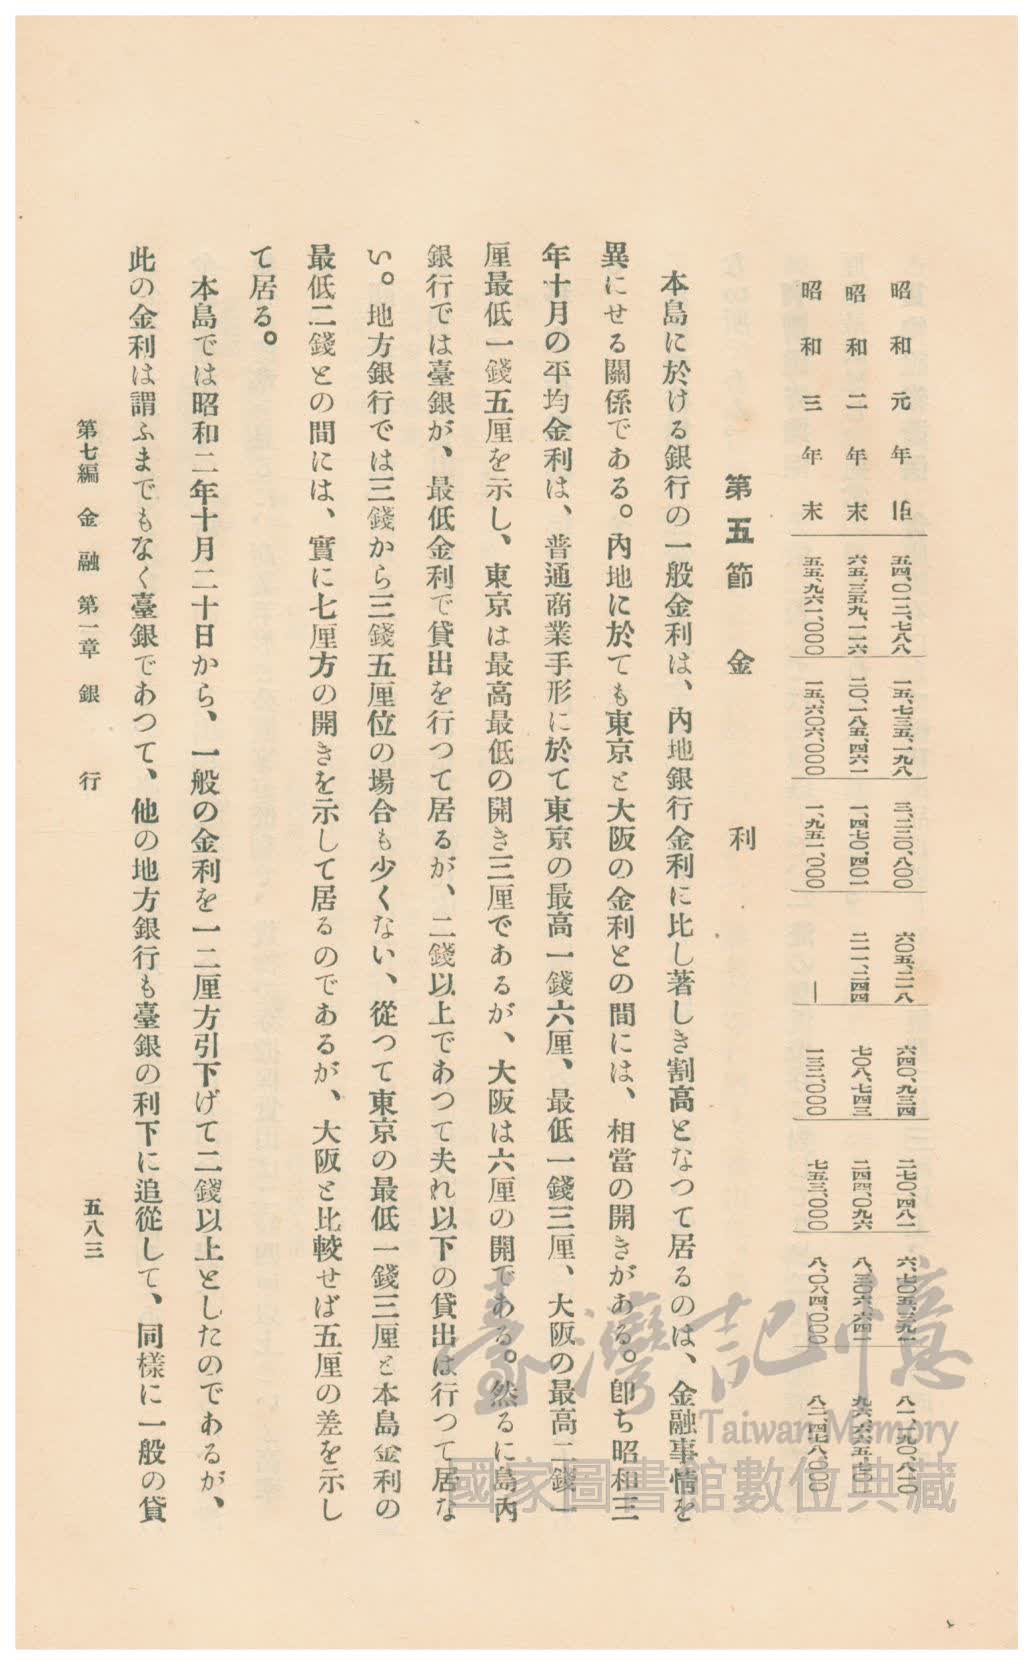 昭和元年末 五四、〇一二、七八八 一五、七三五、一九八 三、二二〇、八〇〇 六〇五、二一八 六四〇、九三四 二七〇、四八一 六、七〇五、三九一 八一、一九〇、八一〇
昭和二年末 六五、三五九、一二六 二〇、一八五、四六一 一、四七〇、四〇一 二一一、二四四 七〇八、七四三 二四四、〇九六 八、三〇六、六四一 九六、六六五、七〇一
昭和三年末 五五、九六一、〇〇〇 一五、六〇六、〇〇〇 一、九五一、〇〇〇 — 一三二、〇〇〇 七五三、〇〇〇 八、〇八四、〇〇〇 八二、四七八、〇〇〇
第五節 金利
本島に於ける銀行の一般金利は、內地銀行金利に比し著しき割高となつて居るのは、金融事情を
異にせる關係である。內地に於ても東京と大阪の金利との間には、相當の開きがある。卽ち昭和三
年十月の平均金利は、普通商業手形に於て東京の最高一錢六厘、最低一錢三厘、大阪の最高二錢一
厘最低一錢五厘を示し、東京は最高最低の開き三厘であるが、大阪は六厘の開である。然るに島內
銀行では臺銀が、最低金利で貸出を行つて居るが、二錢以上であつて夫れ以下の貸出は行つて居な
い。地方銀行では三錢から三錢五厘位の場合も少くない、從つて東京の最低一錢三厘と本島金利の
最低二錢との間には、實に七厘方の開きを示して居るのであるが、大阪と比較せば五厘の差を示し
て居る。
本島では昭和二年十月二十日から、一般の金利を一二厘方引下げて二錢以上としたのであるが、
此の金利は謂ふまでもなく臺銀であつて、他の地方銀行も臺銀の利下に追從して、同樣に一般の貸
第七編 金融 第一章 銀行
五八三
臺灣記憶
Taiwan Memory
國家圖書館數位典藏